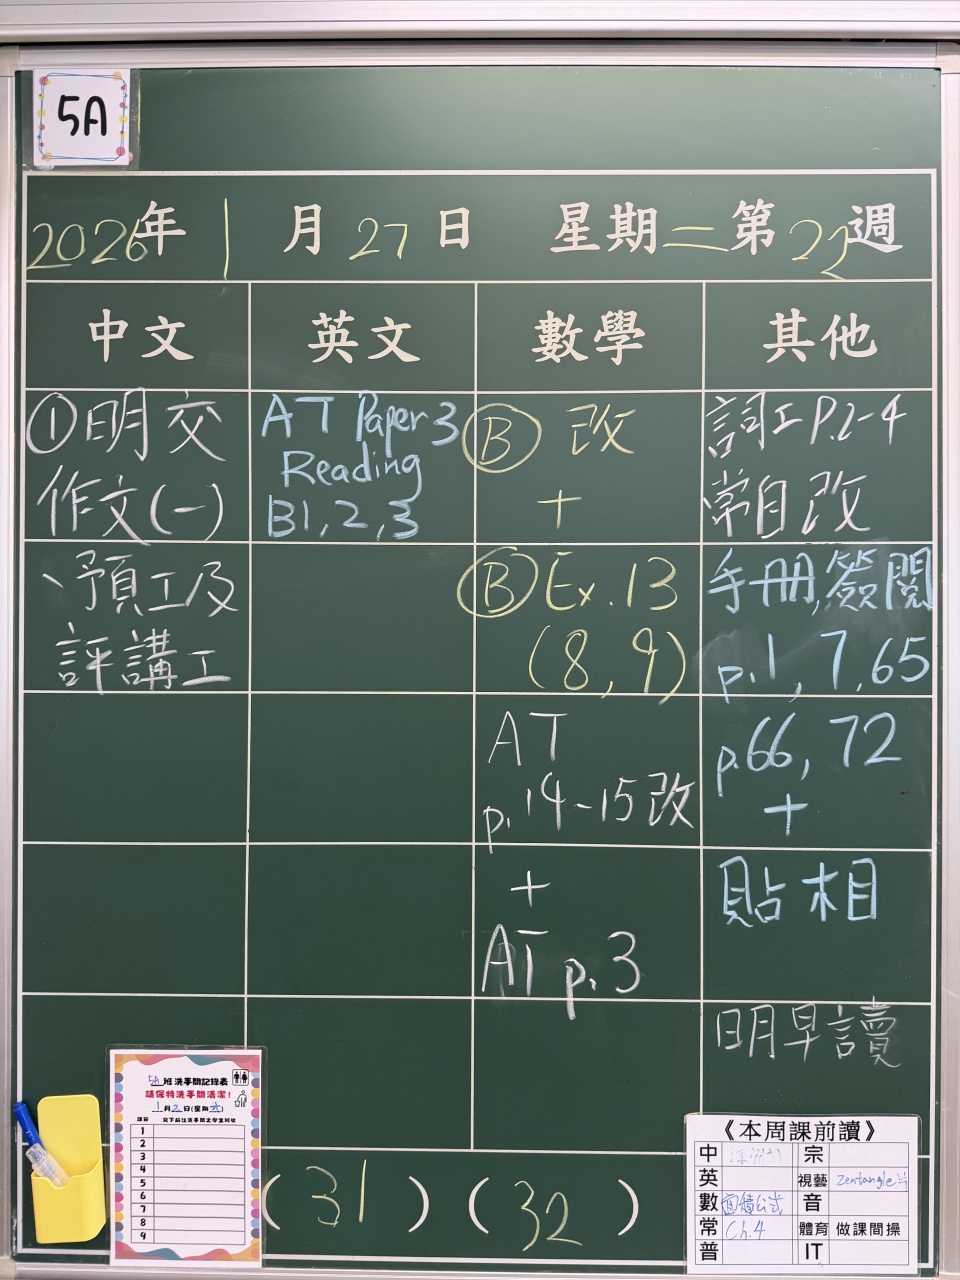 5A
2026年 1月27日 星期二 第22週
中文
①明交
作文(一)
、預工及
評講工
英文
AT Paper 3
Reading
B1, 2, 3
數學
Ⓑ 改
+
Ⓑ Ex. 13
(8, 9)
AT
p. 14-15 改
+
AT p. 3
其他
詞工 P.2-4
常自改
手冊,簽閱
p.1, 7, 65
p.66, 72
+
貼相
明早讀
(31) (32)
5A班洗手間記錄表
請保持洗手間清潔!
1
2
3
4
5
6
7
8
9
《本周課前讀》
中
宗
英
視藝 Zentangle
數 面積公式
音
常 Ch.4
體育 做課間操
普
IT